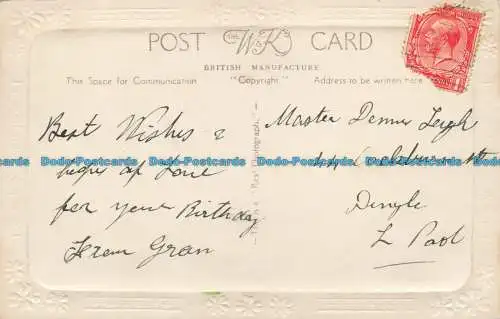 POST CARD
THE W&K Co
BRITISH MANUFACTURE
This Space for Communication "Copyright" Address to be written here
Best Wishes &
of Love
for your Birthday
From Gran
Master Dennis Leigh
44
Dingle
L Pool
Dodo-Postcards Dodo-Postcards Dodo-Postcards Dodo-Postcards Dodo-Postcards Dodo-Postcards